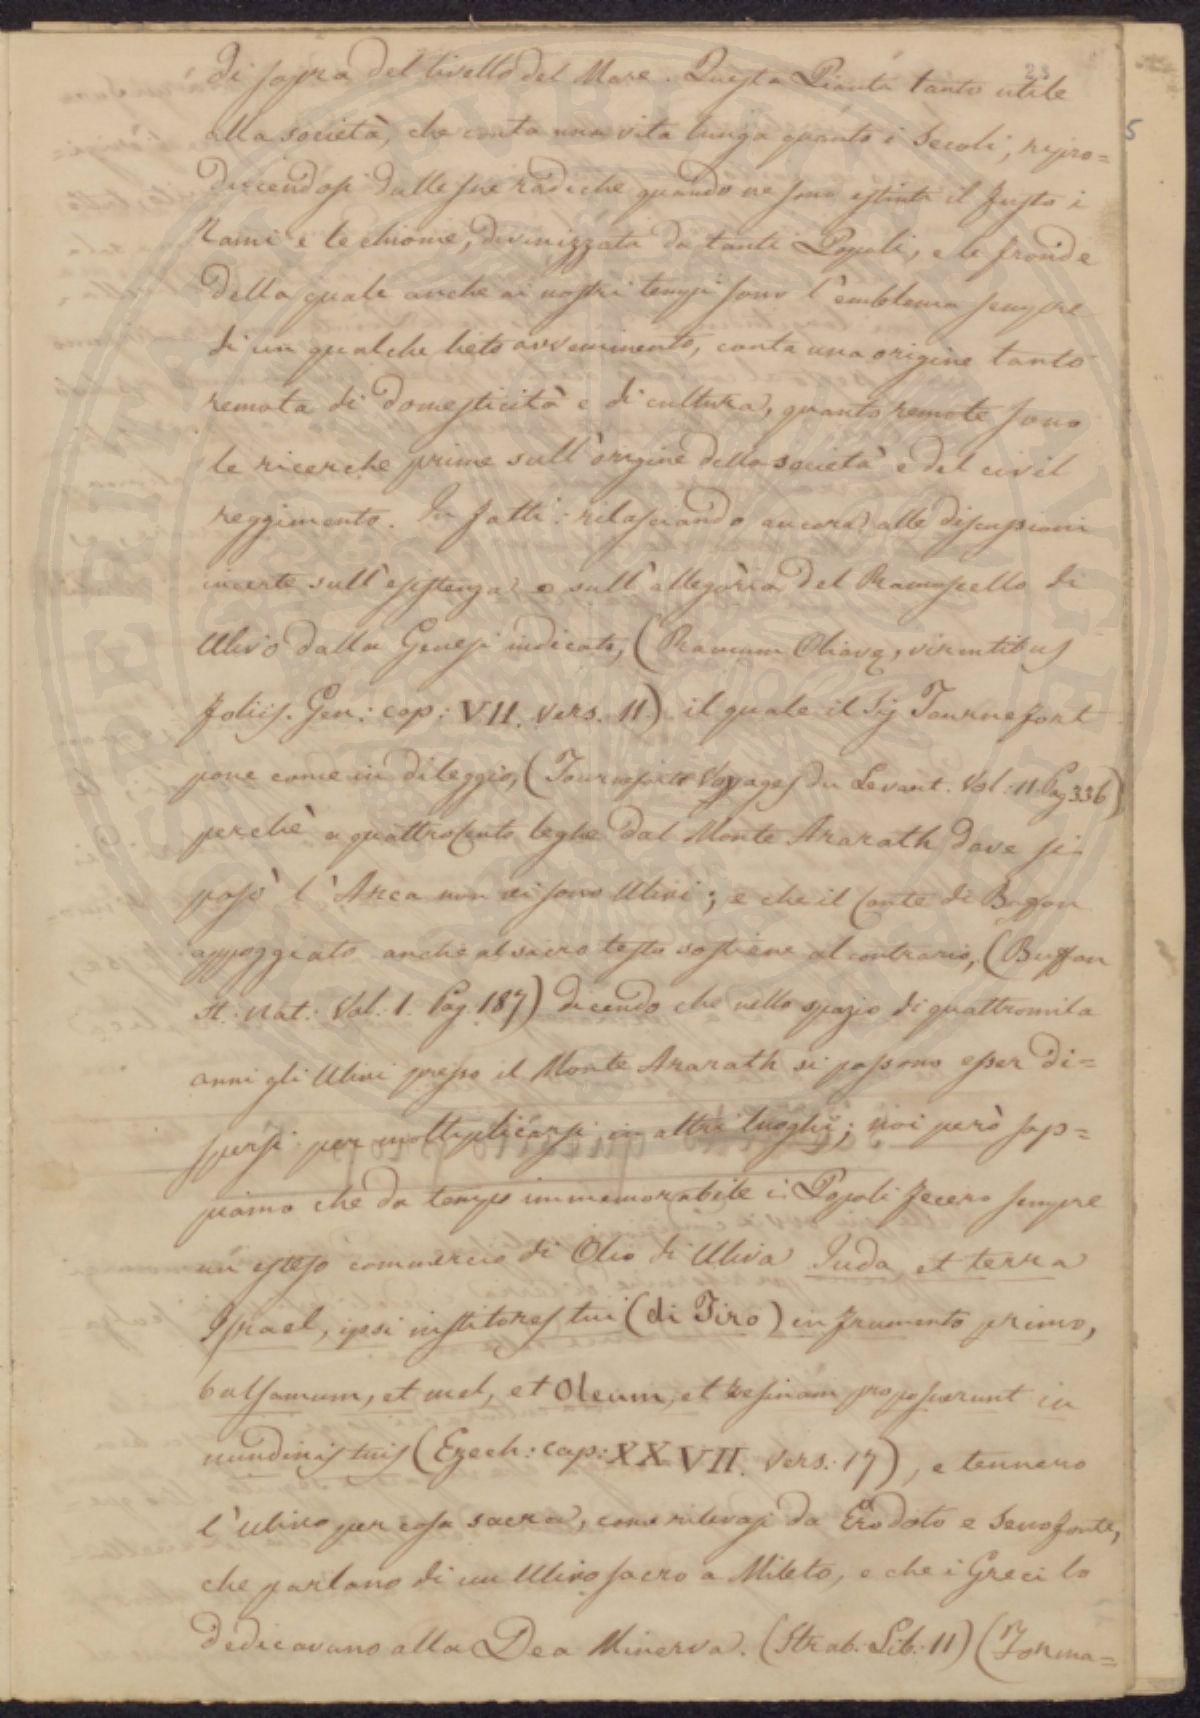 23
di sopra del livello del Mare. Questa Pianta tanto utile
5
alla società, che conta una vita lunga quanto i Secoli, ripro=
ducendosi dalle sue radiche quando ne sono estinti il fusto i
Rami e le chiome, divinizzata da tanti Popoli, e le fronde
della quale anche ai nostri tempi sono l'emblema sempre
di un qualche lieto avvenimento, conta una origine tanto
remota di domesticità e di cultura, quanto remote sono
le ricerche prime sull'origine della società e del civil
reggimento. In fatti: rilasciando ancora alle discussioni
incerte sull'esistenza o sull'allegoria del Ramoscello di
Ulivo dalla Genesi indicato, (Ramum Olivæ, virentibus
foliis. Gen: cap: VII. vers. 11.) il quale il Sig Tournefort
pone come in dileggio, (Tournefort Voyages du Levant. Vol: 11. Pag 336)
perchè a quattrocento leghe dal Monte Ararath dove si
posò l'Arca non vi sono Ulivi; e che il Conte di Buffon
appoggiato anche al sacro testo sostiene al contrario, (Buffon
St: Nat: Vol: 1. Pag. 187) dicendo che nello spazio di quattromila
anni gli Ulivi presso il Monte Ararath si possono esser di=
spersi per moltiplicarsi in altri luoghi; noi però sap=
piamo che da tempo immemorabile i Popoli fecero sempre
un esteso commercio di Olio di Uliva Juda, et terra
Israel, ipsi institores tui (di Tiro) in frumento primo,
balsamum, et mel, et Oleum, et resinam proposuerunt in
nundinis tuis (Ezech: cap: XXVII. vers: 17), e tennero
l'Ulivo per cosa sacra, come rilevasi da Erodoto e Senofonte,
che parlano di un Ulivo sacro a Mileto, e che i Greci lo
dedicavano alla Dea Minerva. (Strab. Lib. 11) (Forma=